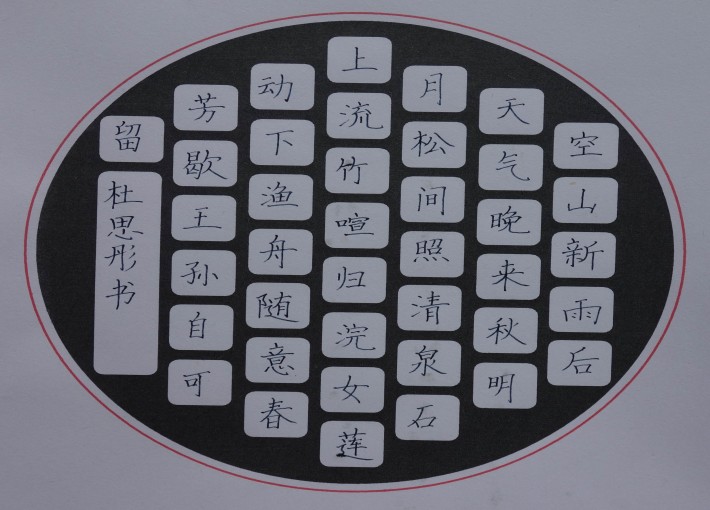 空山新雨后
天气晚来秋明
月松间照清泉石
上流竹喧归浣女莲
动下渔舟随意春
芳歇王孙自可
留
杜思彤书